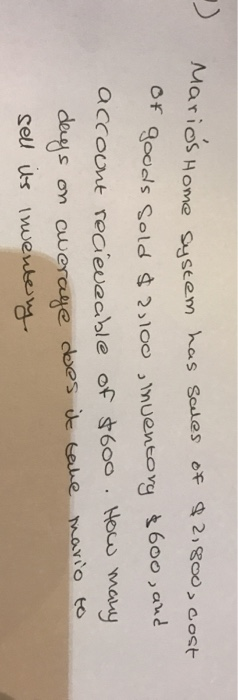 1)
Mario's Home System has sales of $2,800, cost
of goods sold $2,100, inventory $600, and
account recieveable of $600. How many
days on average does it take mario to
sell its inventory.